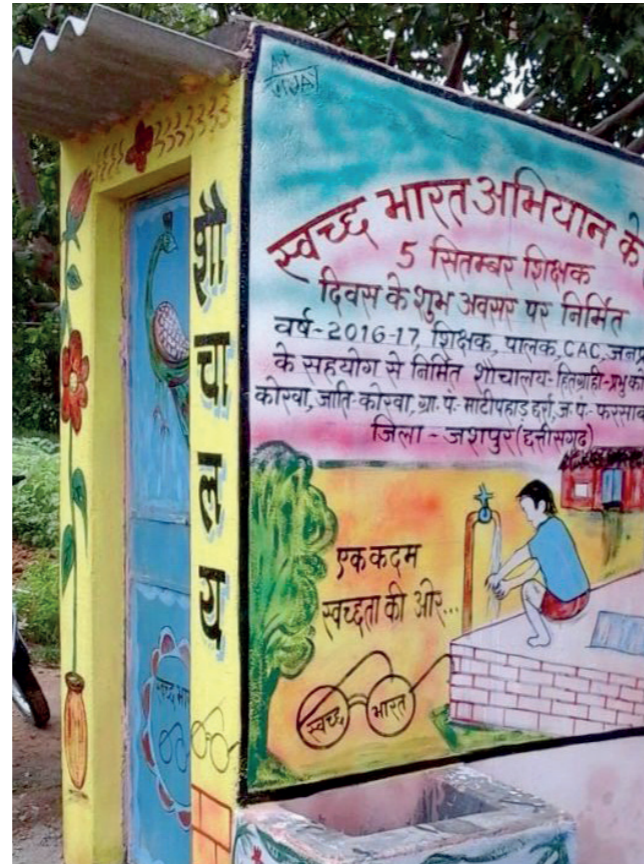 शौचालय
स्वच्छ भारत अभियान के
5 सितम्बर शिक्षक
दिवस के शुभ अवसर पर निर्मित
वर्ष-2016-17, शिक्षक, पालक, CAC, जनप्र
के सहयोग से निर्मित शौचालय-हितग्राही-प्रभु को
कोरवा, जाति-कोरवा, ग्रा.पं.-माटीपहाड़ छर्रा, ज.पं.-फरसाब
जिला-जशपुर (छत्तीसगढ़)
एक कदम
स्वच्छता की ओर...
स्वच्छ भारत
स्वच्छ भा